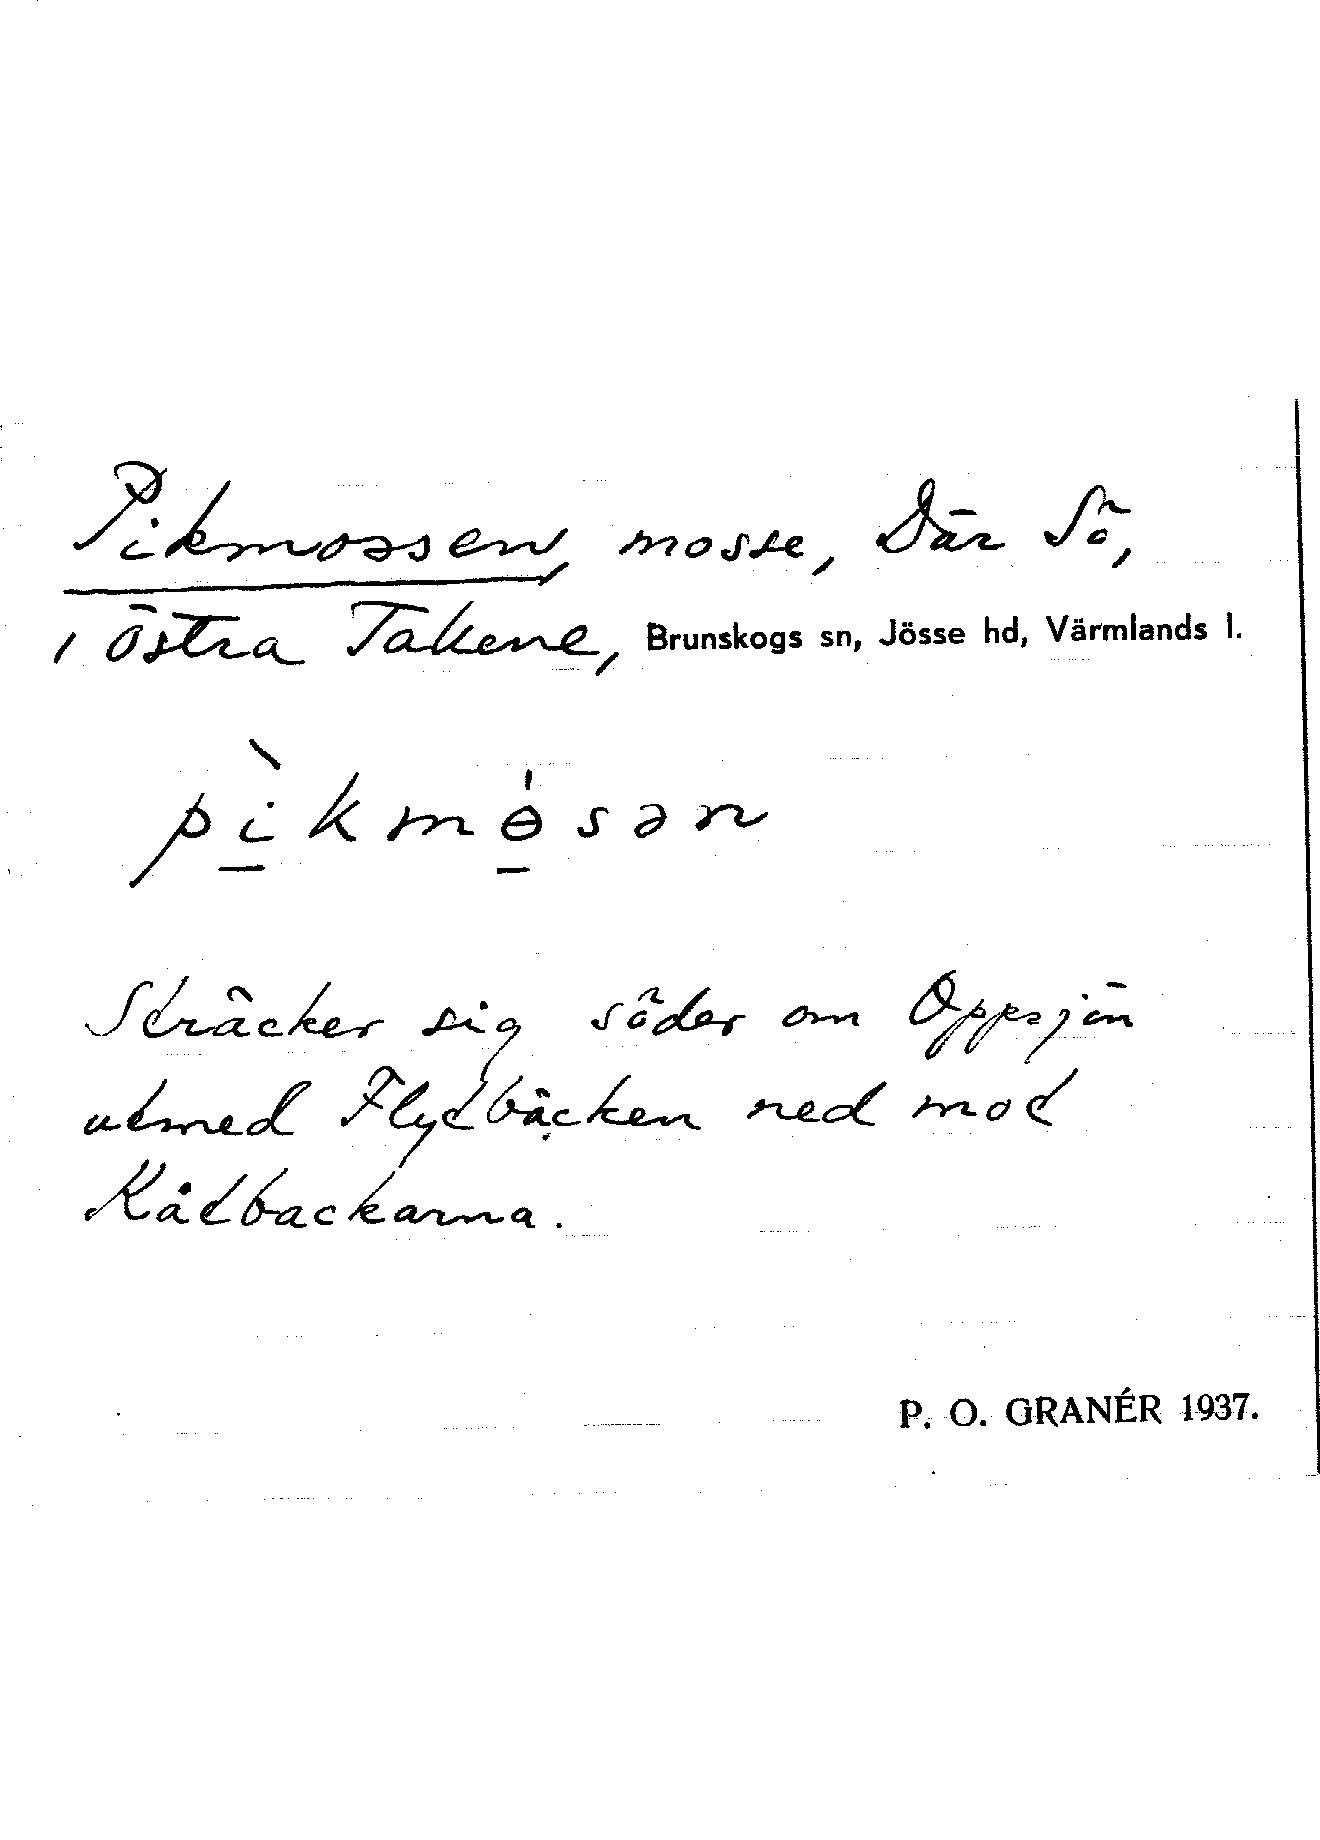 Pikmossen, mosse, Där Sö,
i Östra Takene, Brunskogs sn, Jösse hd, Värmlands l.
pìkmɵ́sən
Sträcker sig söder om Oppsjön
utmed Flytbäcken ned mot
Kåtbackarna.
P. O. GRANÉR 1937.